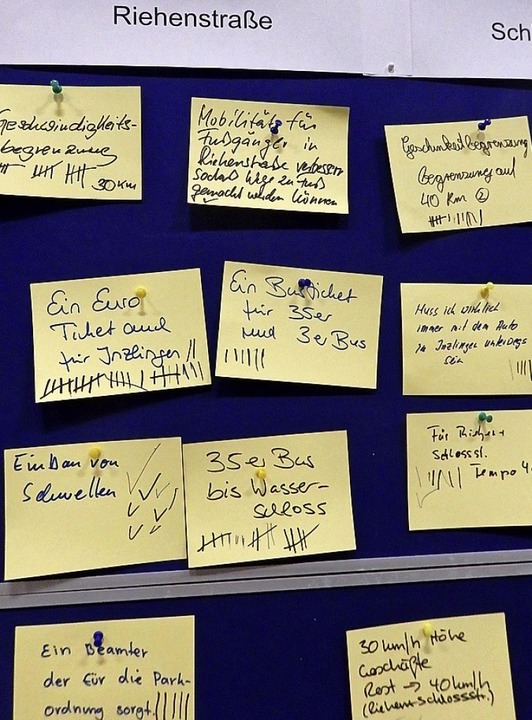 Riehenstraße
Sch
Geschwindigkeits-
begrenzung
30 km
Mobilität für
Fußgänger in
Riehenstraße verbessern
sodass Wege zu Fuß
gemacht werden können
begrenzung auf
40 km 2
Ein Euro
Ticket auch
für Inzlingen
Ein Busticket
für 35er
und 3er Bus
Muss ich wirklich
immer mit dem Auto
in Inzlingen unterwegs
sein
Einbau von
Schwellen
35er Bus
bis Wasser-
schloss
Für Riehen +
Schlossst.
Tempo 4
Ein Beamter
der für die Park-
ordnung sorgt.
30 km/h Höhe
Geschäfte
Rest → 40 km/h
(Riehen-Schlossstr.)